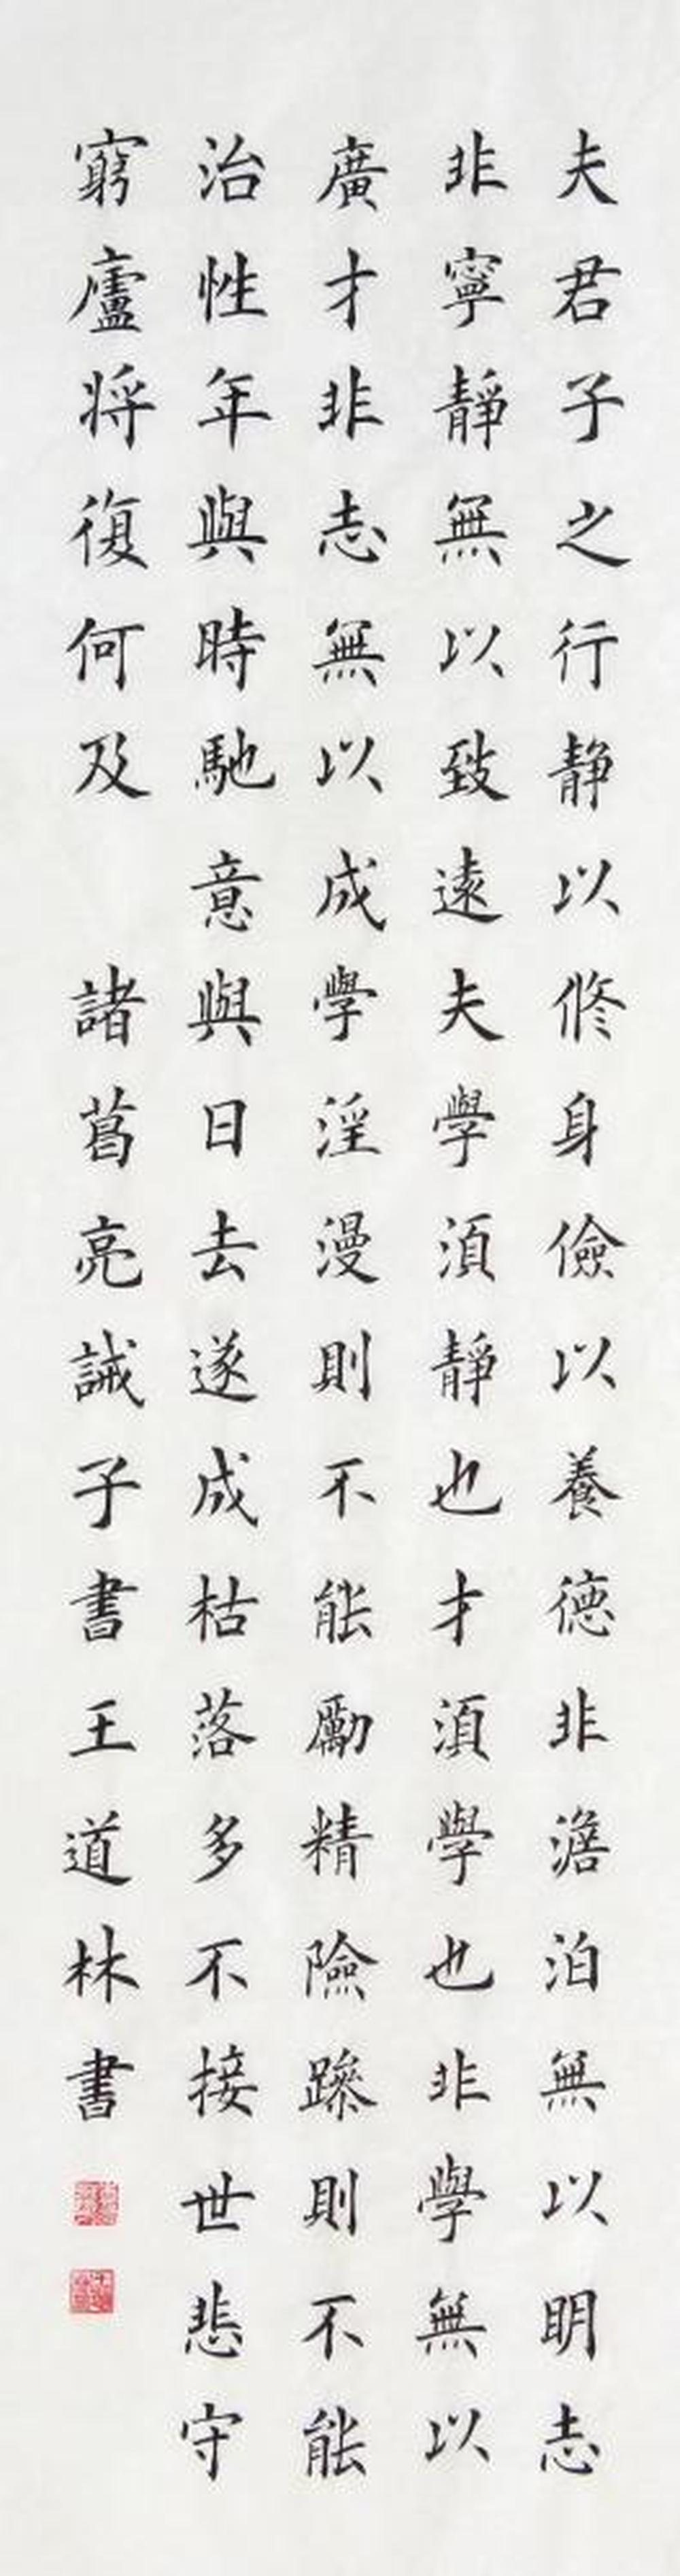 夫君子之行静以修身儉以養德非澹泊無以明志
非寧靜無以致遠夫學須靜也才須學也非學無以
廣才非志無以成學淫漫則不能勵精險躁則不能
治性年與時馳意與日去遂成枯落多不接世悲守
窮廬將復何及 諸葛亮誡子書王道林書